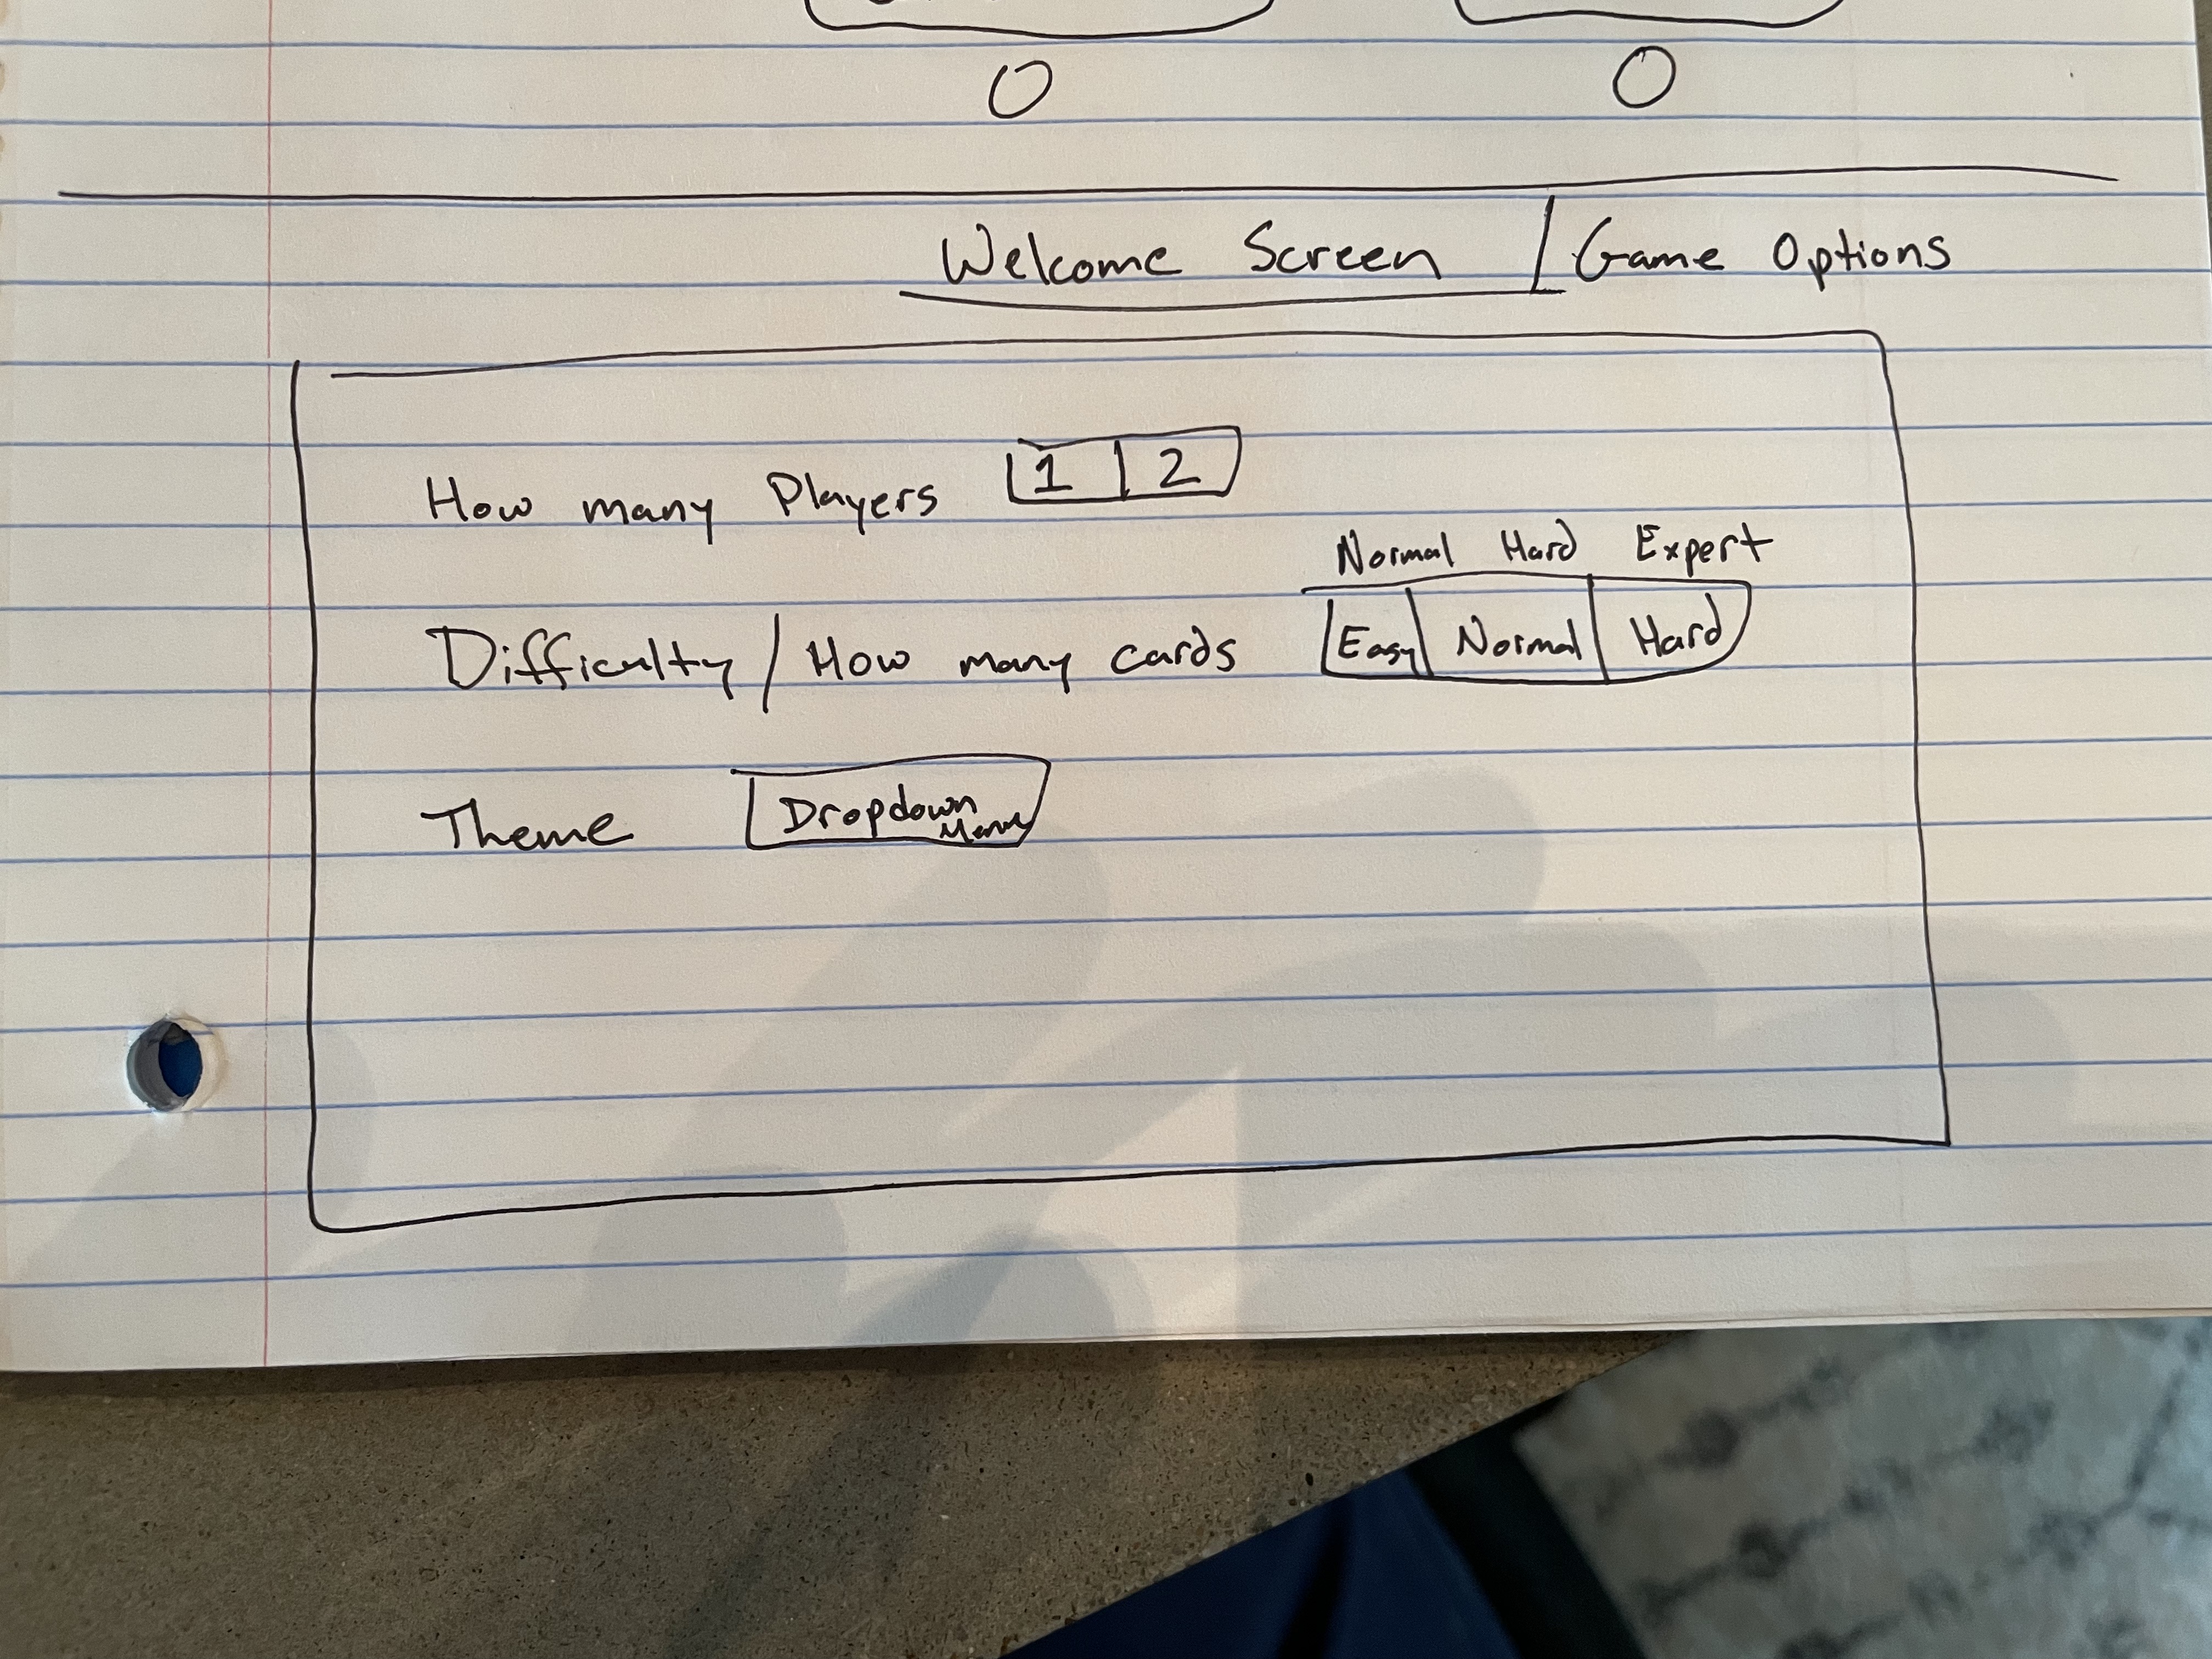 0 0
Welcome Screen / Game Options
How many Players 1 2
Normal Hard Expert
Difficulty / How many cards Easy Normal Hard
Theme Dropdown Menu